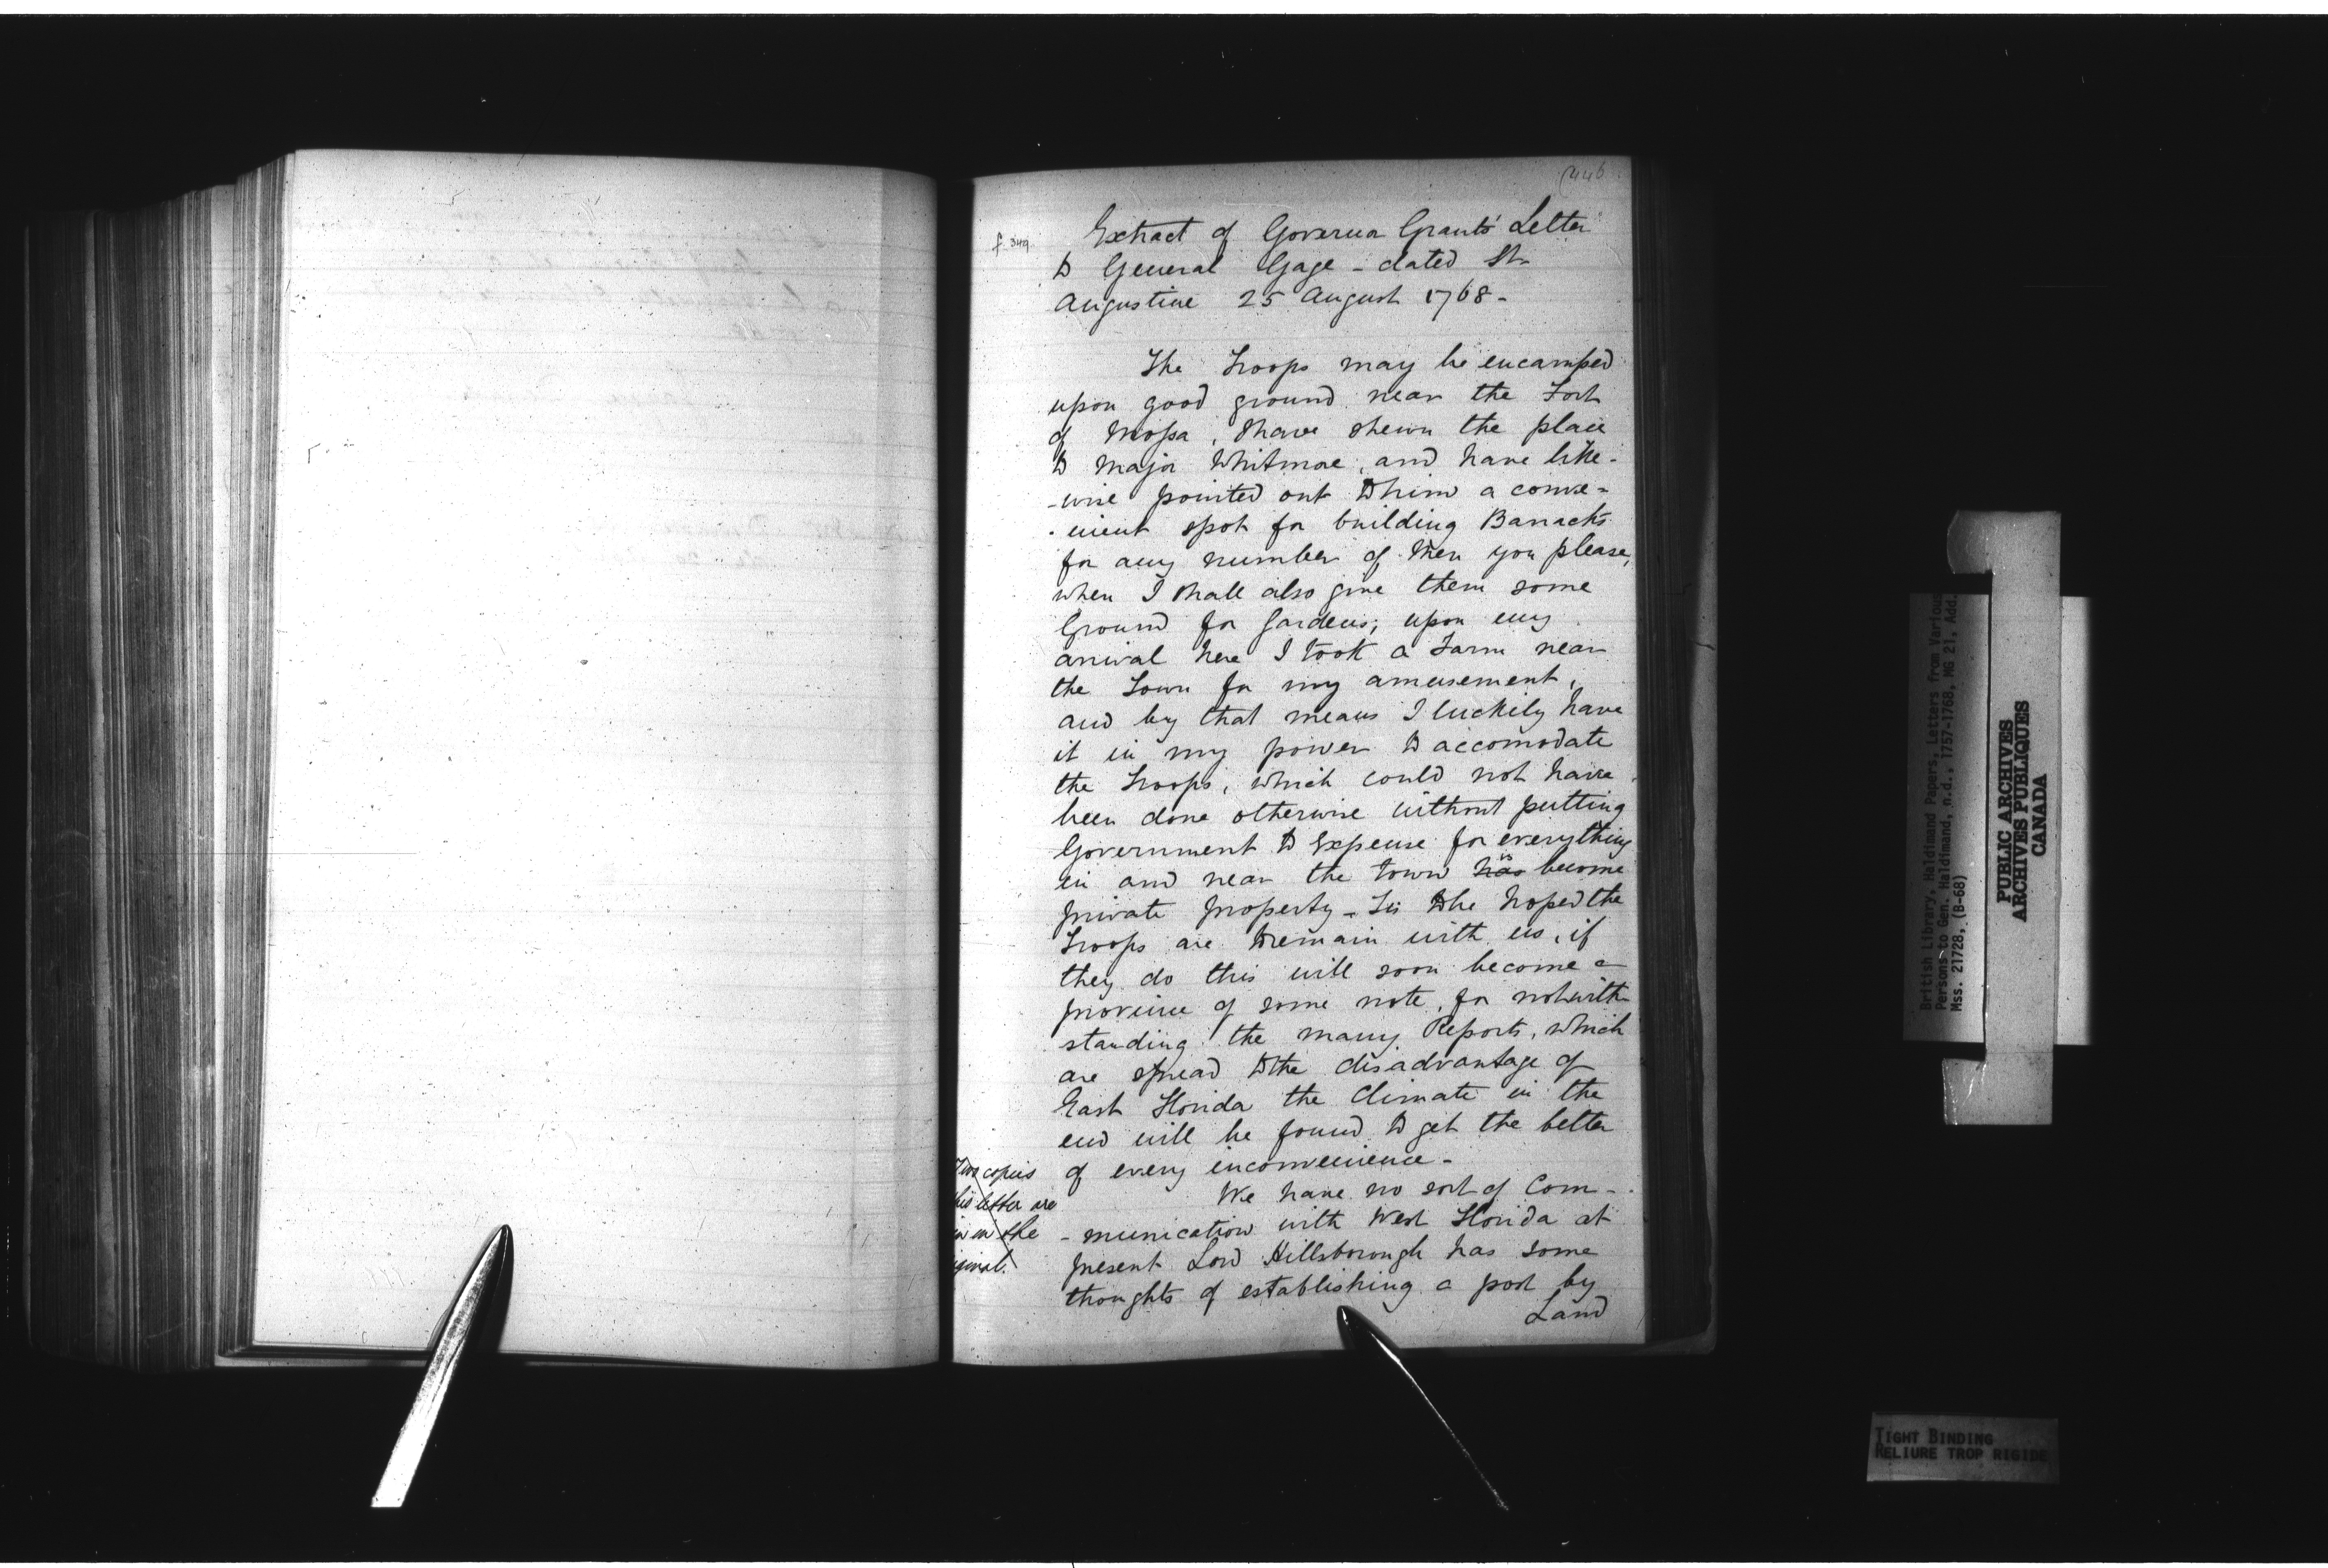 446
f. 349.
Extract of Governor Grants' Letter
to General Gage - dated St.
Augustine 25 August 1768 -
The Troops may be encamped
upon good ground near the Fort
of Mossa, I have shewn the place
to Major Whitmore, and have like-
-wise pointed out to him a conve-
-nient spot for building Barracks
for any number of Men you please,
when I shall also give them some
Ground for Gardens; upon my
arrival here I took a Farm near
the Town for my amusement,
and by that means I luckily have
it in my power to accomodate
the Troops, which could not have
been done otherwise without putting
Government to Expense for everything
in and near the town has is become
private property - Tis to be hoped the
Troops are to remain with us, if
they do this will soon become a
province of some note, for notwith-
standing the many Reports, which
are spread to the disadvantage of
East Florida the Climate in the
end will be found to get the better
of every inconvenience -
We have no sort of Com-
-munication with West Florida at
present Lord Hillsborough has some
thoughts of establishing a post by
Land
Two copies
this letter are
in the
British Library, Haldimand Papers, Letters from Various
Persons to Gen. Haldimand, n.d., 1757-1768, MG 21, Add.
Mss. 21728, (B-68)
PUBLIC ARCHIVES
ARCHIVES PUBLIQUES
CANADA
TIGHT BINDING
RELIURE TROP RIGIDE